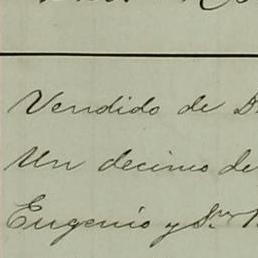 Vendido de D
Un decimo de
Eugenio y Sr.